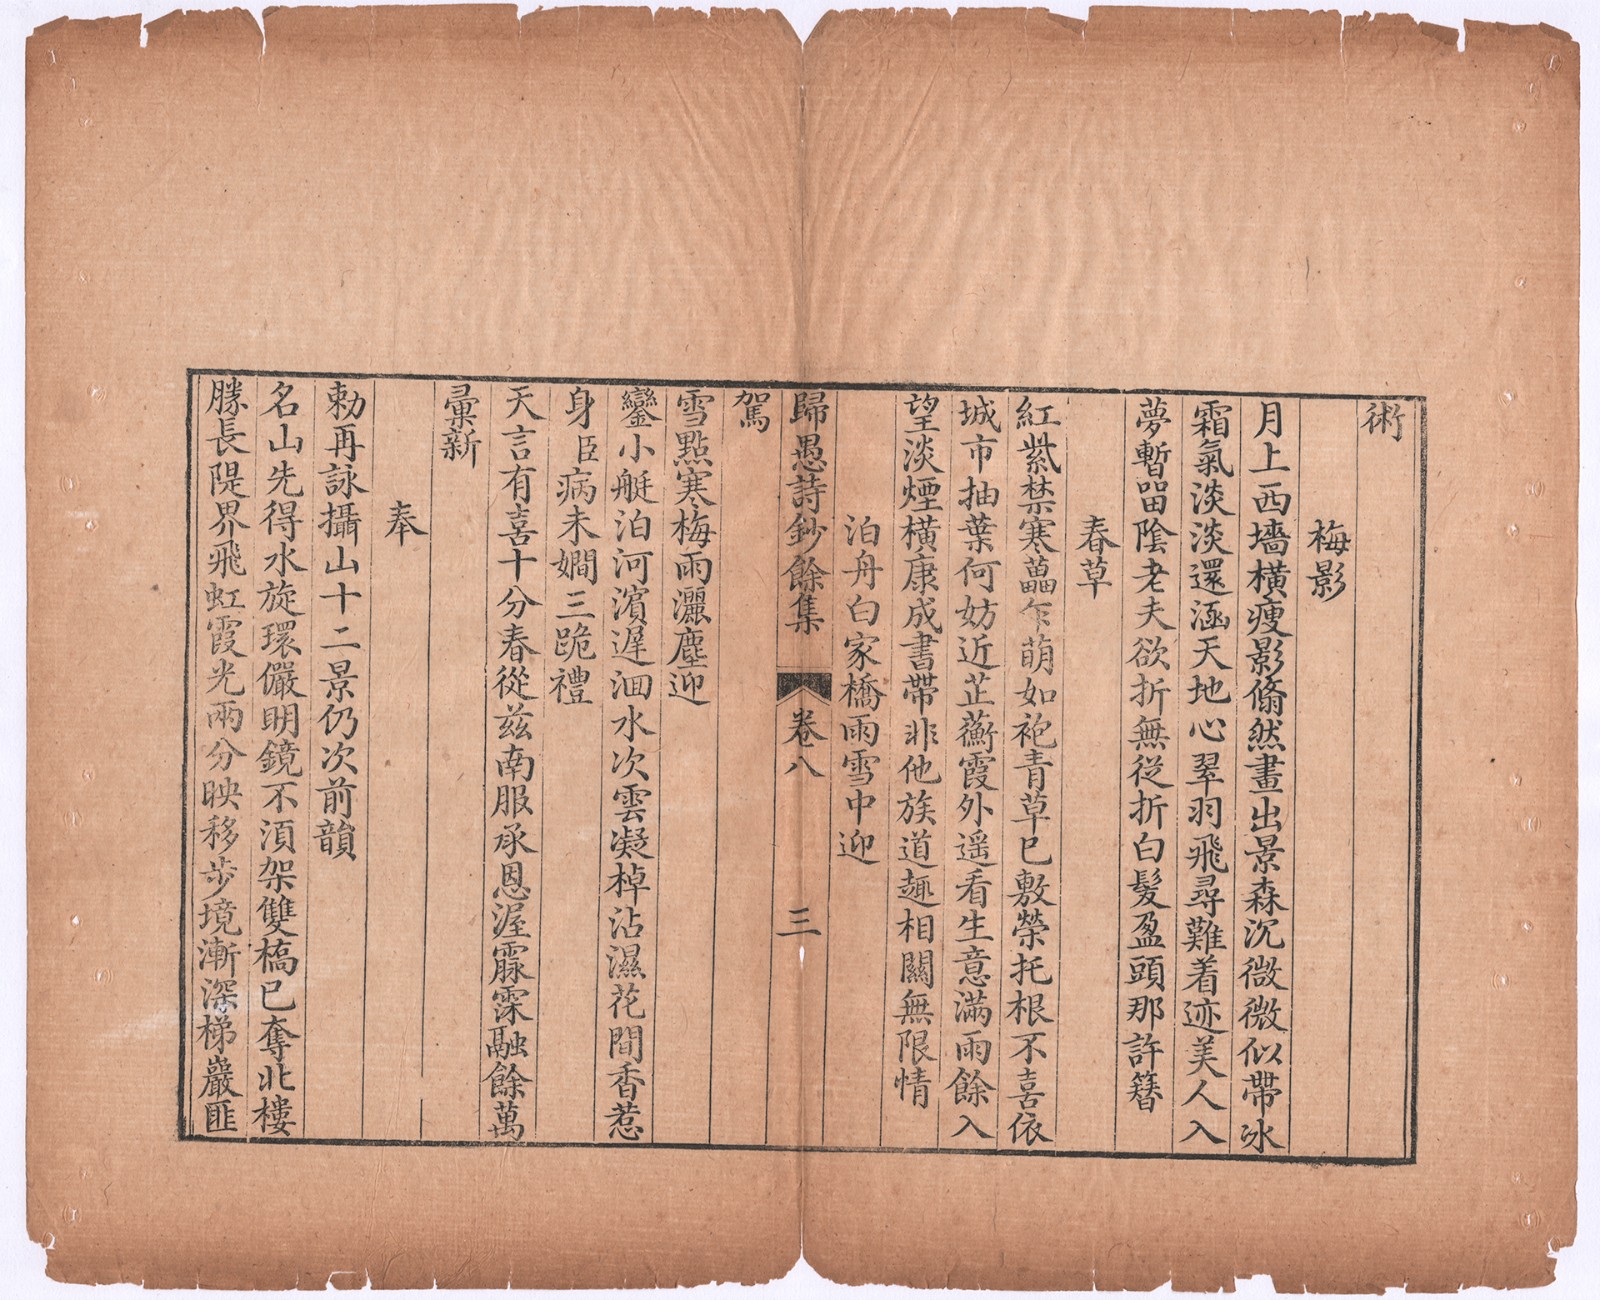 術
梅影
月上西墻橫瘦影翛然畫出景森沉微微似帶冰
霜氣淡淡還涵天地心翠羽飛尋難着迹美人入
夢暫留陰老夫欲折無從折白髮盈頭那許簪
春草
紅紫禁寒蕌乍萌如袍青草已敷榮托根不喜依
城市抽葉何妨近芷蘅霞外遥看生意滿雨餘入
望淡煙橫康成書帶非他族道趣相關無限情
泊舟白家橋雨雪中迎
歸愚詩鈔餘集 卷八 三
駕
雪點寒梅雨灑塵迎
鑾小艇泊河濵遲洄水次雲凝棹沾濕花間香惹
身臣病未嫺三跪禮
天言有喜十分春從兹南服承恩渥霡霂融餘萬
彙新
奉
勅再詠攝山十二景仍次前韻
名山先得水旋環儼明鏡不湏架雙橋已奪北樓
勝長隄界飛虹霞光兩分映移步境漸深梯巖匪